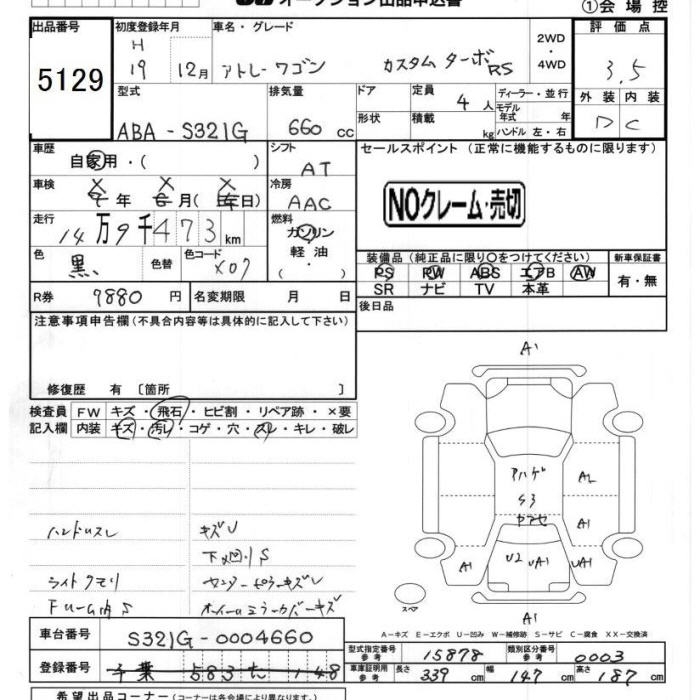 オークション出品申込書
①会場控
出品番号 5129
初度登録年月 H 19 12月
車名・グレード アトレーワゴン カスタムターボRS
2WD・4WD
評価点 3.5
外装 D 内装 C
型式 ABA-S321G
排気量 660 cc
ドア 形状
定員 4人
積載 kg
ディーラー・並行
モデル年式 年
ハンドル 左・右
車歴 自家用・( )
シフト AT
セールスポイント (正常に機能するものに限ります)
NOクレーム・売切
車検 年 月( 日)
冷房 AAC
走行 14万9千473km
燃料 ガソリン・軽油・( )
色 黒 色替 色コード X07
装備品 (純正品に限り○をつけてください)
PS PW ABS エアB AW
SR ナビ TV 本革
新車保証書 有・無
R券 9880円
名変期限 月 日
後日品
注意事項申告欄 (不具合内容等は具体的に記入して下さい)
修復歴 有 [箇所 ]
検査員記入欄
FW キズ・飛石・ヒビ割・リペア跡・×要
内装 キズ・汚レ・コゲ・穴・スレ・キレ・破レ
ハンドルスレ
キズU
下廻りS
ライトクモリ
A1
アハゲ
A2
ヤブセ
A1
U2 UA1
A1
UA1
スペア
A1
A-キズ E-エクボ U-凹み W-補修跡 S-サビ C-腐食 XX-交換済
車台番号 S321G-0004660
登録番号 千葉 583 た 148
型式指定番号 参考 15878
類別区分番号 参考 0003
車庫証明用 参考 長さ 339 cm 幅 147 cm 高さ 187 cm
希望出品コーナー (コーナーは各会場により異なります)